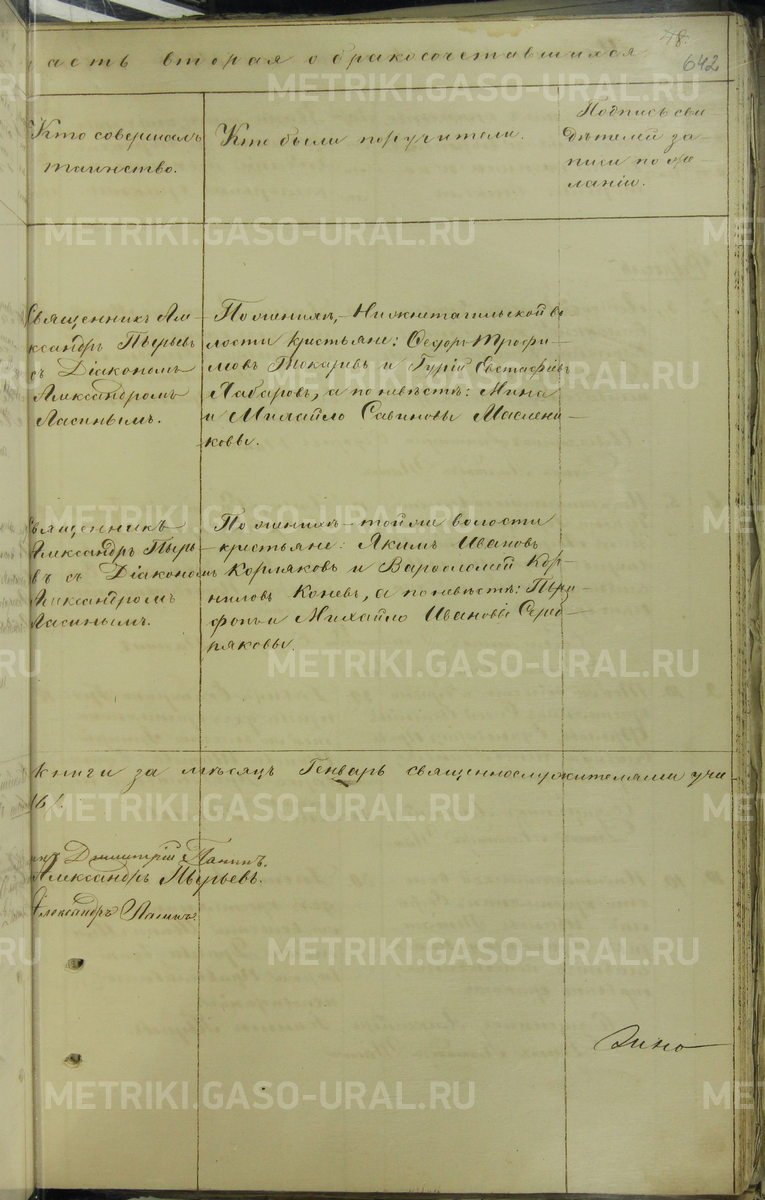 48.
642
асть вторая о бракосочетавшихся
Кто совершалъ
таинство.
Кто были поручители.
Подпись сви-
дѣтелей за-
писи по же-
ланію.
Священникъ Але-
ксандръ Пырьевъ
съ Діакономъ
Александромъ
По женихѣ,- Нижнетагильской во
лости крестьяне: Федоръ Трофи-
мовъ Токаревъ и Гурій Евстафіевъ
Лабаровъ, а по невѣстѣ: Мина
и Михайло Савиновы Маслени-
ковы.
Священникъ
Александръ Пырь-
въ съ Діакономъ
Александромъ
По женихѣ- той же волости
крестьяне: Якимъ Ивановъ
Корляковъ и Варѳоломей Кор-
ниловъ Коневъ, а по невѣстѣ:
и Михайло Ивановы Сереб-
ряковы.
книги за мѣсяцъ Генварь священнослужителями учи-
Димитрій Папинъ.
Александръ Пырьевъ.
Александръ
METRIKI.GASO-URAL.RU